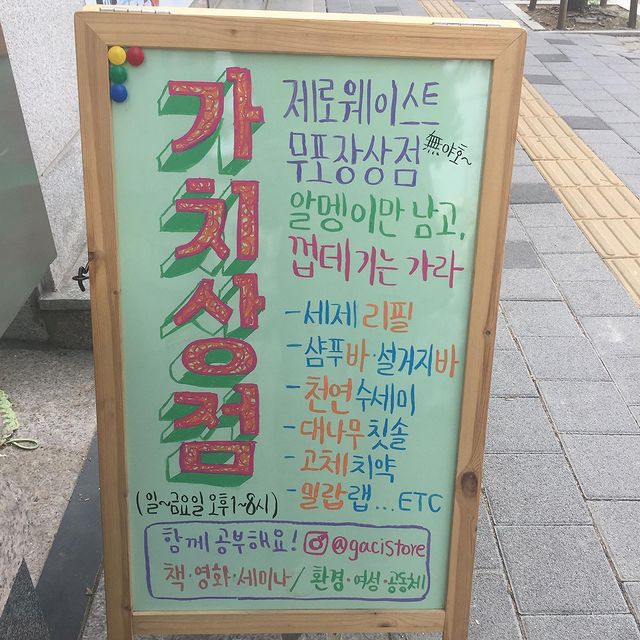 가치상점
제로웨이스트
무포장상점 無야호~
알멩이만 남고,
껍데기는 가라
- 세제 리필
- 샴푸바·설거지바
- 천연수세미
- 대나무 칫솔
- 고체치약
- 밀랍랩...ETC
(일~금요일 오후1~8시)
함께 공부해요! @gacistore
책·영화·세미나/ 환경·여성·공동체